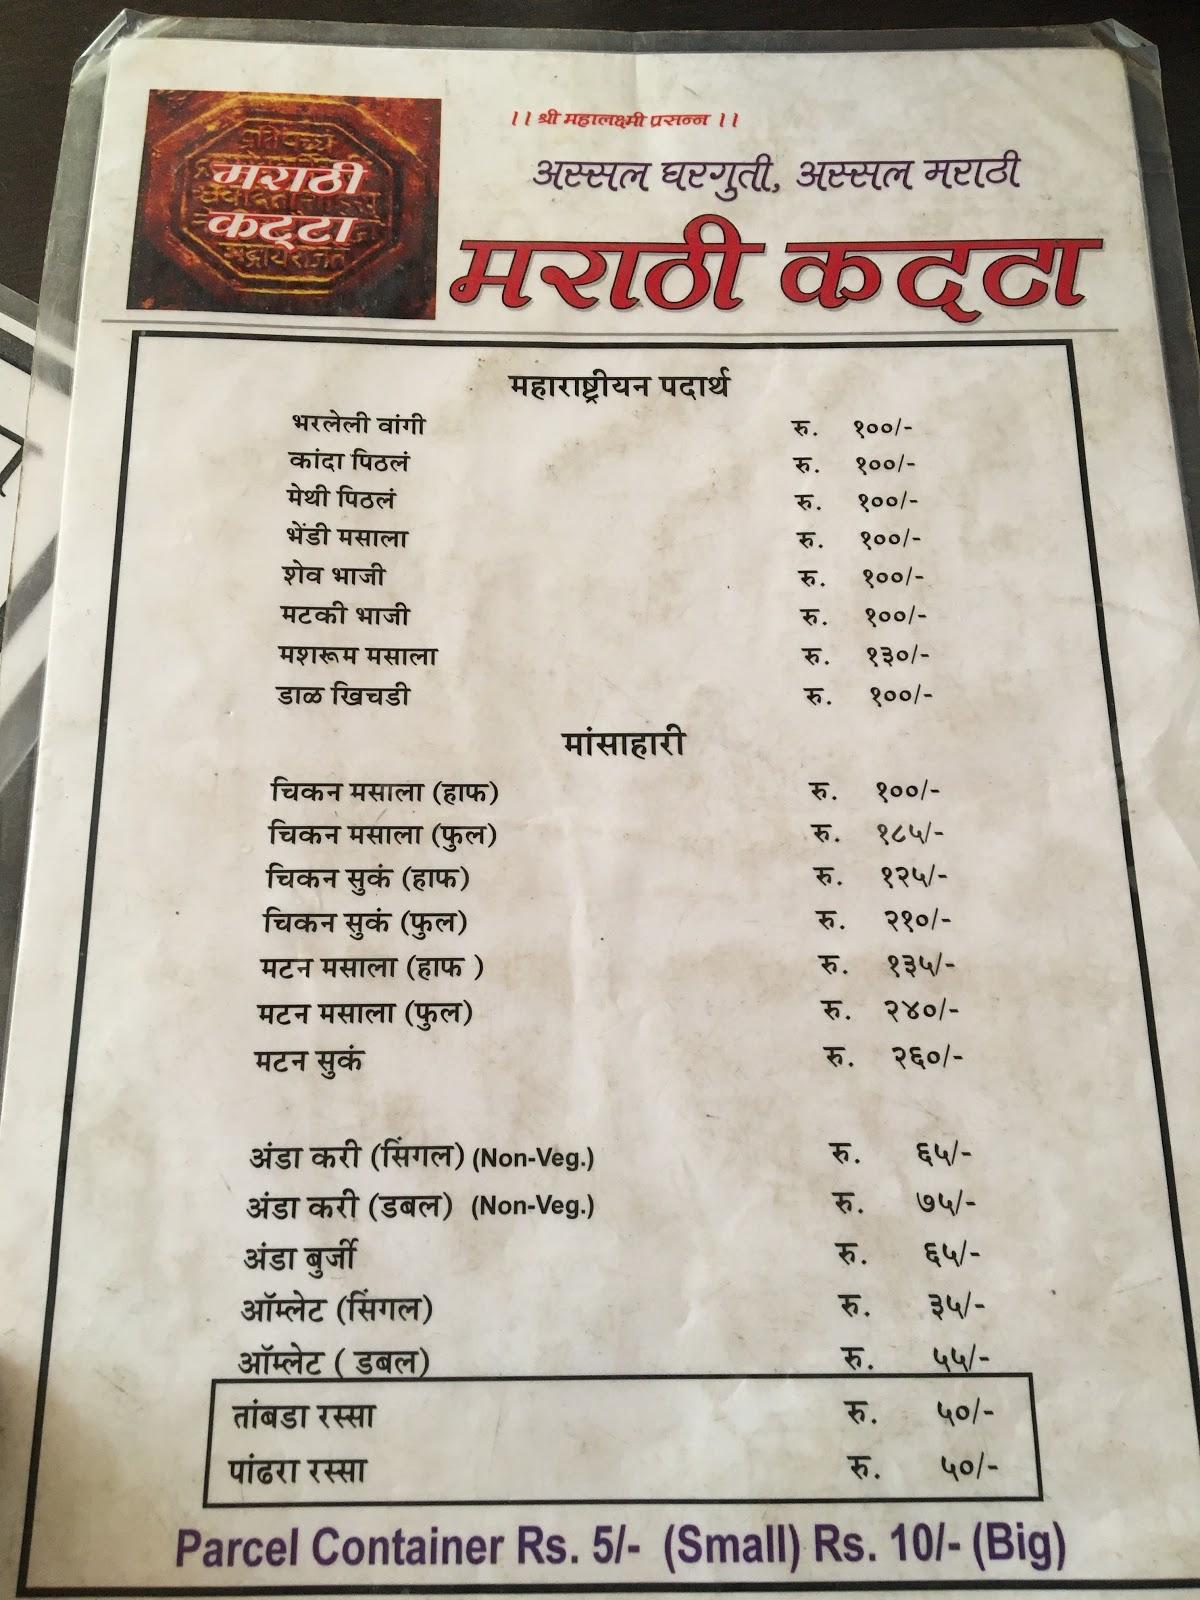 मराठी
कट्टा
।। श्री महालक्ष्मी प्रसन्न ।।
अस्सल घरगुती, अस्सल मराठी
मराठी कट्टा
महाराष्ट्रीयन पदार्थ
भरलेली वांगी रु. १००/-
कांदा पिठलं रु. १००/-
मेथी पिठलं रु. १००/-
भेंडी मसाला रु. १००/-
शेव भाजी रु. १००/-
मटकी भाजी रु. १००/-
मशरूम मसाला रु. १३०/-
डाळ खिचडी रु. १००/-
मांसाहारी
चिकन मसाला (हाफ) रु. १००/-
चिकन मसाला (फुल) रु. १८५/-
चिकन सुकं (हाफ) रु. १२५/-
चिकन सुकं (फुल) रु. २१०/-
मटन मसाला (हाफ ) रु. १३५/-
मटन मसाला (फुल) रु. २४०/-
मटन सुकं रु. २६०/-
अंडा करी (सिंगल) (Non-Veg.) रु. ६५/-
अंडा करी (डबल) (Non-Veg.) रु. ७५/-
अंडा बुर्जी रु. ६५/-
ऑम्लेट (सिंगल) रु. ३५/-
ऑम्लेट ( डबल) रु. ५५/-
तांबडा रस्सा रु. ५०/-
पांढरा रस्सा रु. ५०/-
Parcel Container Rs. 5/- (Small) Rs. 10/- (Big)